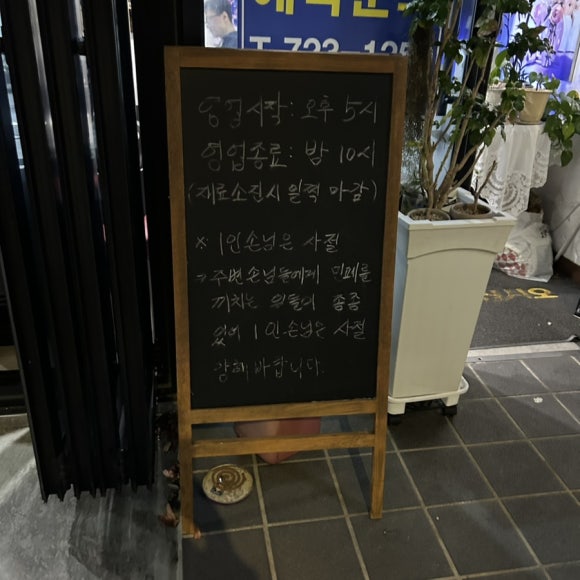 T. 723-125
영업시작: 오후 5시
영업종료: 밤 10시
(재료소진시 일찍 마감)
※ 1인손님은 사절
→ 주변손님들에게 민폐를
끼치는 분들이 종종
있어 1인손님은 사절
양해바랍니다.